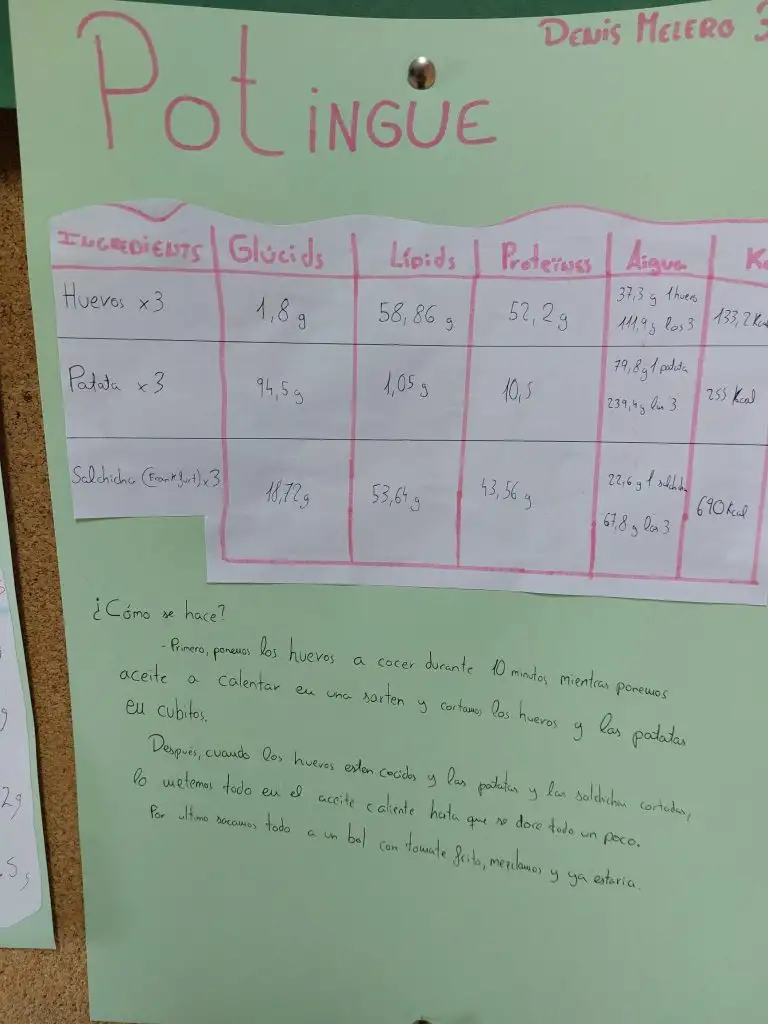 DENIS MELERO 3
PotINGUE
INGREDIENTS Glúcids Lípids Proteïnes Aigua Kc
Huevos x3 1,8 g 58,86 g 52,2g 37,3 g 1 huevo 111,9 g los 3 133,2 Kcal
Patata x3 94,5 g 1,05 g 10,5 79,8 g 1 patata 239,4 g las 3 255 Kcal
Salchicha (Frankfurt) x3 18,72g 53,64 g 43,56 g 22,6 g 1 salchicha 67,8 g las 3 690 Kcal
¿Cómo se hace?
-Primero, ponemos los huevos a cocer durante 10 minutos mientras ponemos
aceite a calentar en una sarten y cortamos los huevos y las patatas
en cubitos.
Después, cuando los huevos esten cocidos y las patatas y las salchichas cortadas,
lo metemos todo en el aceite caliente hata que se dore todo un poco.
Por ultimo sacamos todo a un bol con tomate frito, mezclamos y ya estaria.
g
2g
.5 g